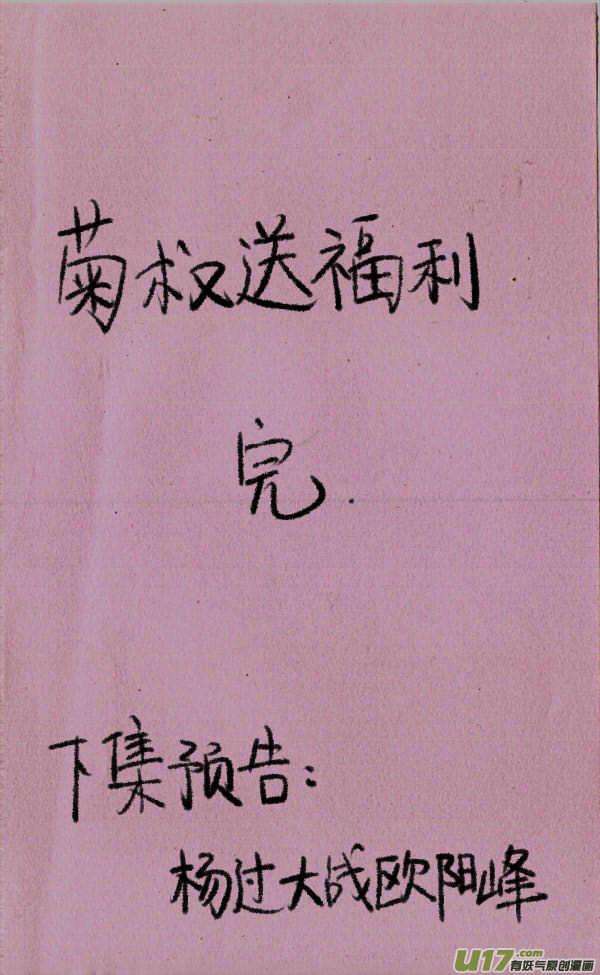 菊叔送福利
完.
下集预告:
杨过大战欧阳峰
U17.com
有妖气原创漫画